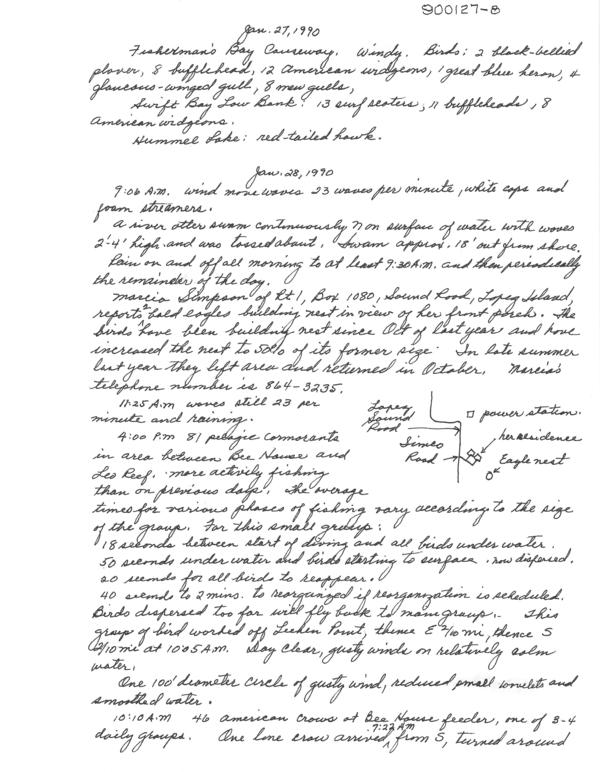 900127-B
Jan. 27, 1990
Fisherman's Bay Causeway. Windy. Birds: 2 black-bellied
plover, 8 bufflehead, 12 American widgeons, 1 great blue heron, 4
glaucous-winged gull, 8 mew gulls,
Swift Bay Low Bank: 13 surf scoters, 11 buffleheads, 8
American widgeons.
Hummel Lake: red-tailed hawk.
Jan. 28, 1990
9:06 A.M. wind move waves 23 waves per minute, white caps and
foam streamers.
A river otter swam continuously N on surface of water with waves
2'-4' high and was tossed about. Swam approx. 15' out from shore.
Rain on and off all morning to at least 9:30 A.M. and then periodically
the remainder of the day.
Marcia Simpson of Rt 1, Box 1080, Sound Road, Lopez Island,
reports 2 bald eagles building nest in view of her front porch. The
birds have been building nest since Oct of last year and have
increased the nest to 50% of its former size. In late summer
last year they left area and returned in October. Marcia's
telephone number is 864-3235.
11:25 A.M waves still 23 per
minute and raining.
4:00 P.M 81 pelagic cormorants
in area between Bee House and
Leo Reef. more actively fishing
than on previous days. The average
Lopez
Sound
Road
power station.
her residence
Simes
Road
Eagle nest
times for various phases of fishing vary according to the size
of the group. For this small group:
18 seconds between start of diving and all birds under water.
50 seconds under water and birds starting to surface. now dispersed.
20 seconds for all birds to reappear.
40 second to 2 mins. to reorganized if reorganization is scheduled.
Birds dispersed too far will fly back to main group. This
group of bird worked off Point, thence E 2/10 mi, thence S
2/10 mi at 10:05 A.M. Day clear, gusty winds on relatively calm
water.
One 100' diameter circle of gusty wind, reduced small wavelets and
smoothed water.
10:10 A.M 46 american crows at Bee House feeder, one of 3-4
daily groups. One lone crow arrived 7:22 AM from S, turned around